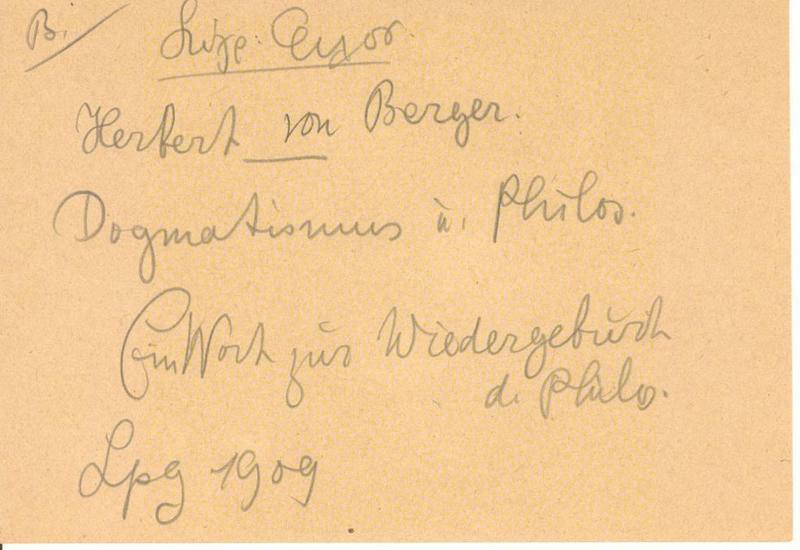 B.
Herbert von Berger.
Dogmatismus u. Philos.
Ein Wort zur Wiedergeburt
d. Philo.
Lpg 1909